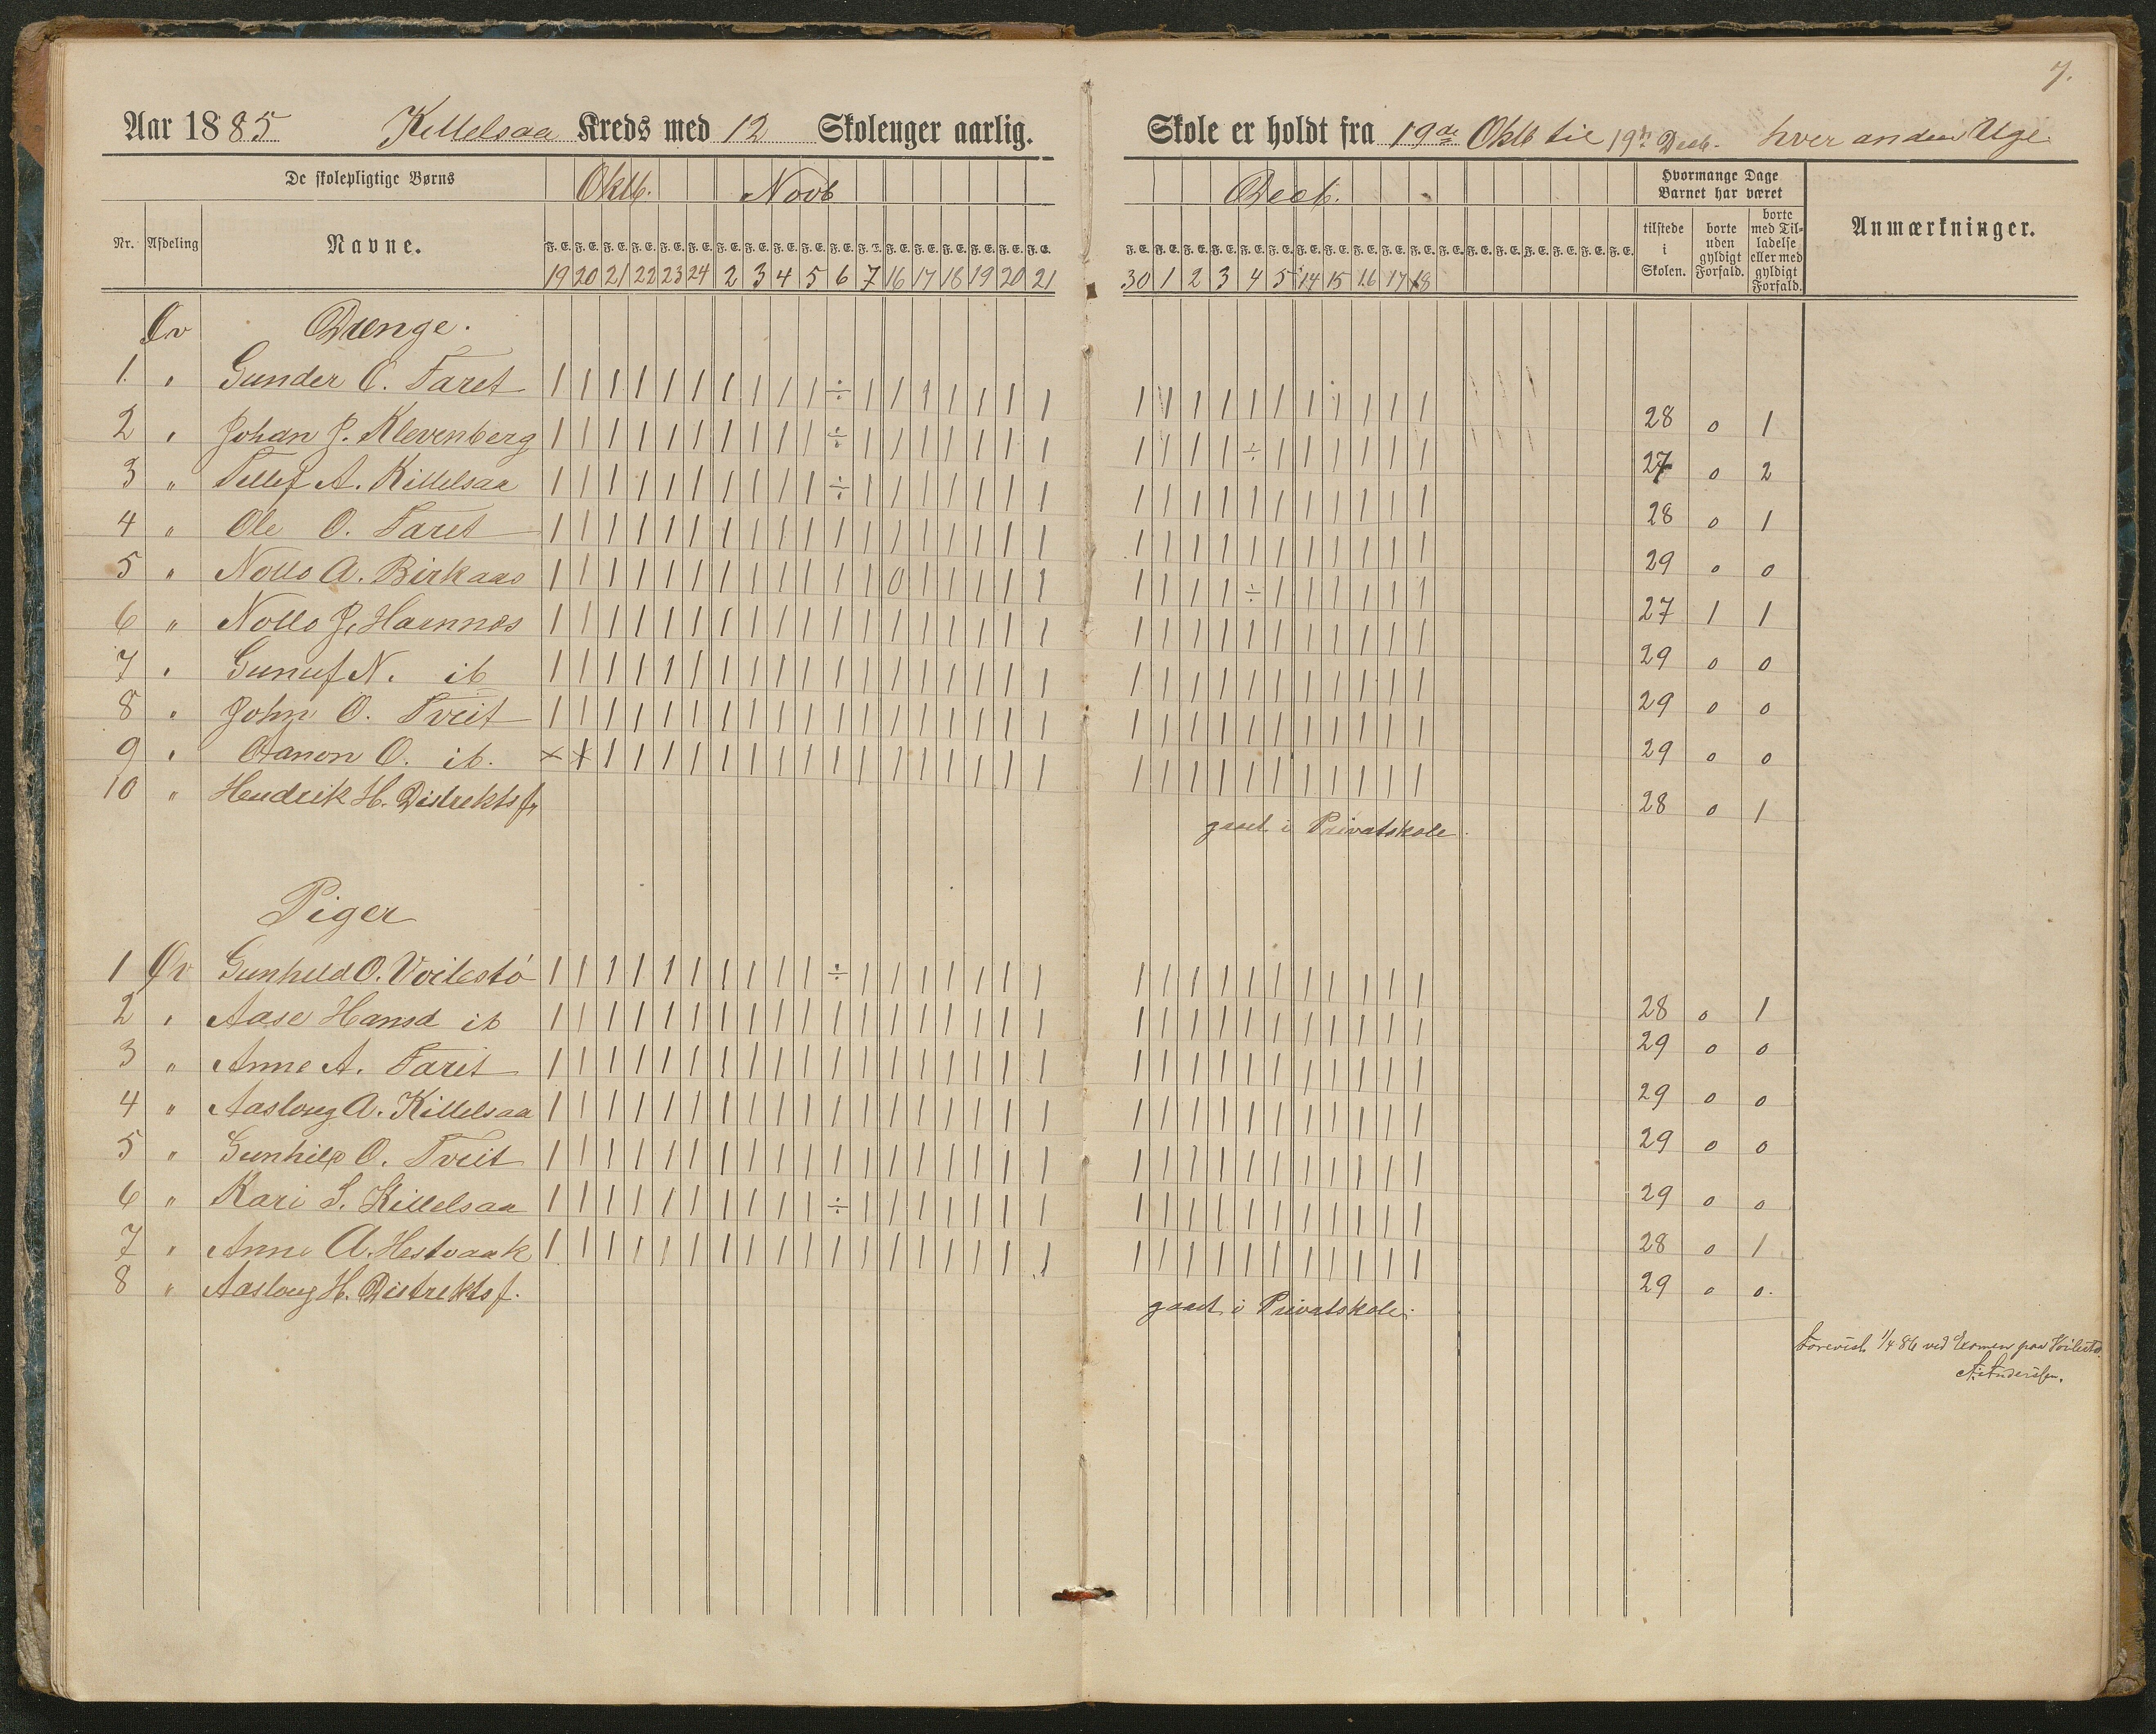 7.
Aar 1885 Killelsaa Kreds med 12 Skoleuger aarlig. Skole er holdt fra 19de Oktb til 19de Decb. hver anden Uge.
De skolepligtige Børns Oktb. Novb Decb. Hvormange Dage Barnet har været
Nr. Afdeling Navne. tilstede i Skolen. borte uden gyldigt Forfald. borte med Tilladelse eller med gyldigt Forfald. Anmærkninger.
F. E. F. E. F. E. F. E. F. E. F. E. F. E. F. E. F. E. F. E. F. E. F. E. F. E. F. E. F. E. F. E. F. E. F. E. F. E. F. E. F. E. F. E. F. E. F. E. F. E. F. E. F. E. F. E. F. E. F. E. F. E. F. E. F. E. F. E. F. E. F. E.
19 20 21 22 23 24 2 3 4 5 6 7 16 17 18 19 20 21 30 1 2 3 4 5 14 15 16 17 18
Øv Drenge.
1. " Gunder O. Taret | | | | | | | | | | ÷ | | | | | | | | | | | | | | | | | | 28 0 1
2 " Johan J. Klevenberg | | | | | | | | | | ÷ | | | | | | | | | | | ÷ | | | | | | 27 0 2
3 " Tellef A. Killelsaa | | | | | | | | | | ÷ | | | | | | | | | | | | | | | | | | 28 0 1
4 " Ole O. Taret | | | | | | | | | | | | | | | | | | | | | | | | | | | | | 29 0 0
5 " Nolls A. Birkaas | | | | | | | | | | | | 0 | | | | | | | | | ÷ | | | | | | 27 1 1
6 " Nolls J. Hamnes | | | | | | | | | | | | | | | | | | | | | | | | | | | | | 29 0 0
7 " Gunuf N. ib | | | | | | | | | | | | | | | | | | | | | | | | | | | | | 29 0 0
8 " John O. Tveit | | | | | | | | | | | | | | | | | | | | | | | | | | | | | 29 0 0
9 " Aanon O. ib. × × | | | | | | | | | | | | | | | | | | | | | | | | | | | 28 0 1
10 " Hendrik H. Distriktsf. gaaet i Privatskole.
Piger
1 Øv Gunhild O. Voilestø | | | | | | | | | | ÷ | | | | | | | | | | | | | | | | | | 28 0 1
2 " Aase Hansd ib | | | | | | | | | | | | | | | | | | | | | | | | | | | | | 29 0 0
3 " Anne A. Taret | | | | | | | | | | | | | | | | | | | | | | | | | | | | | 29 0 0
4 " Aasloug A. Killelsaa | | | | | | | | | | | | | | | | | | | | | | | | | | | | | 29 0 0
5 " Gunhild O. Tveit | | | | | | | | | | | | | | | | | | | | | | | | | | | | | 29 0 0
6 " Kari S. Killelsaa | | | | | | | | | | ÷ | | | | | | | | | | | | | | | | | | 28 0 1
7 " Anne A. Hestvaak | | | | | | | | | | | | | | | | | | | | | | | | | | | | | 29 0 0.
8 " Aasloug H. Distriktsf. gaaet i Privatskole.
Forevist 1/4 86 ved Examen paa Voilestø.
A. Anderssen.